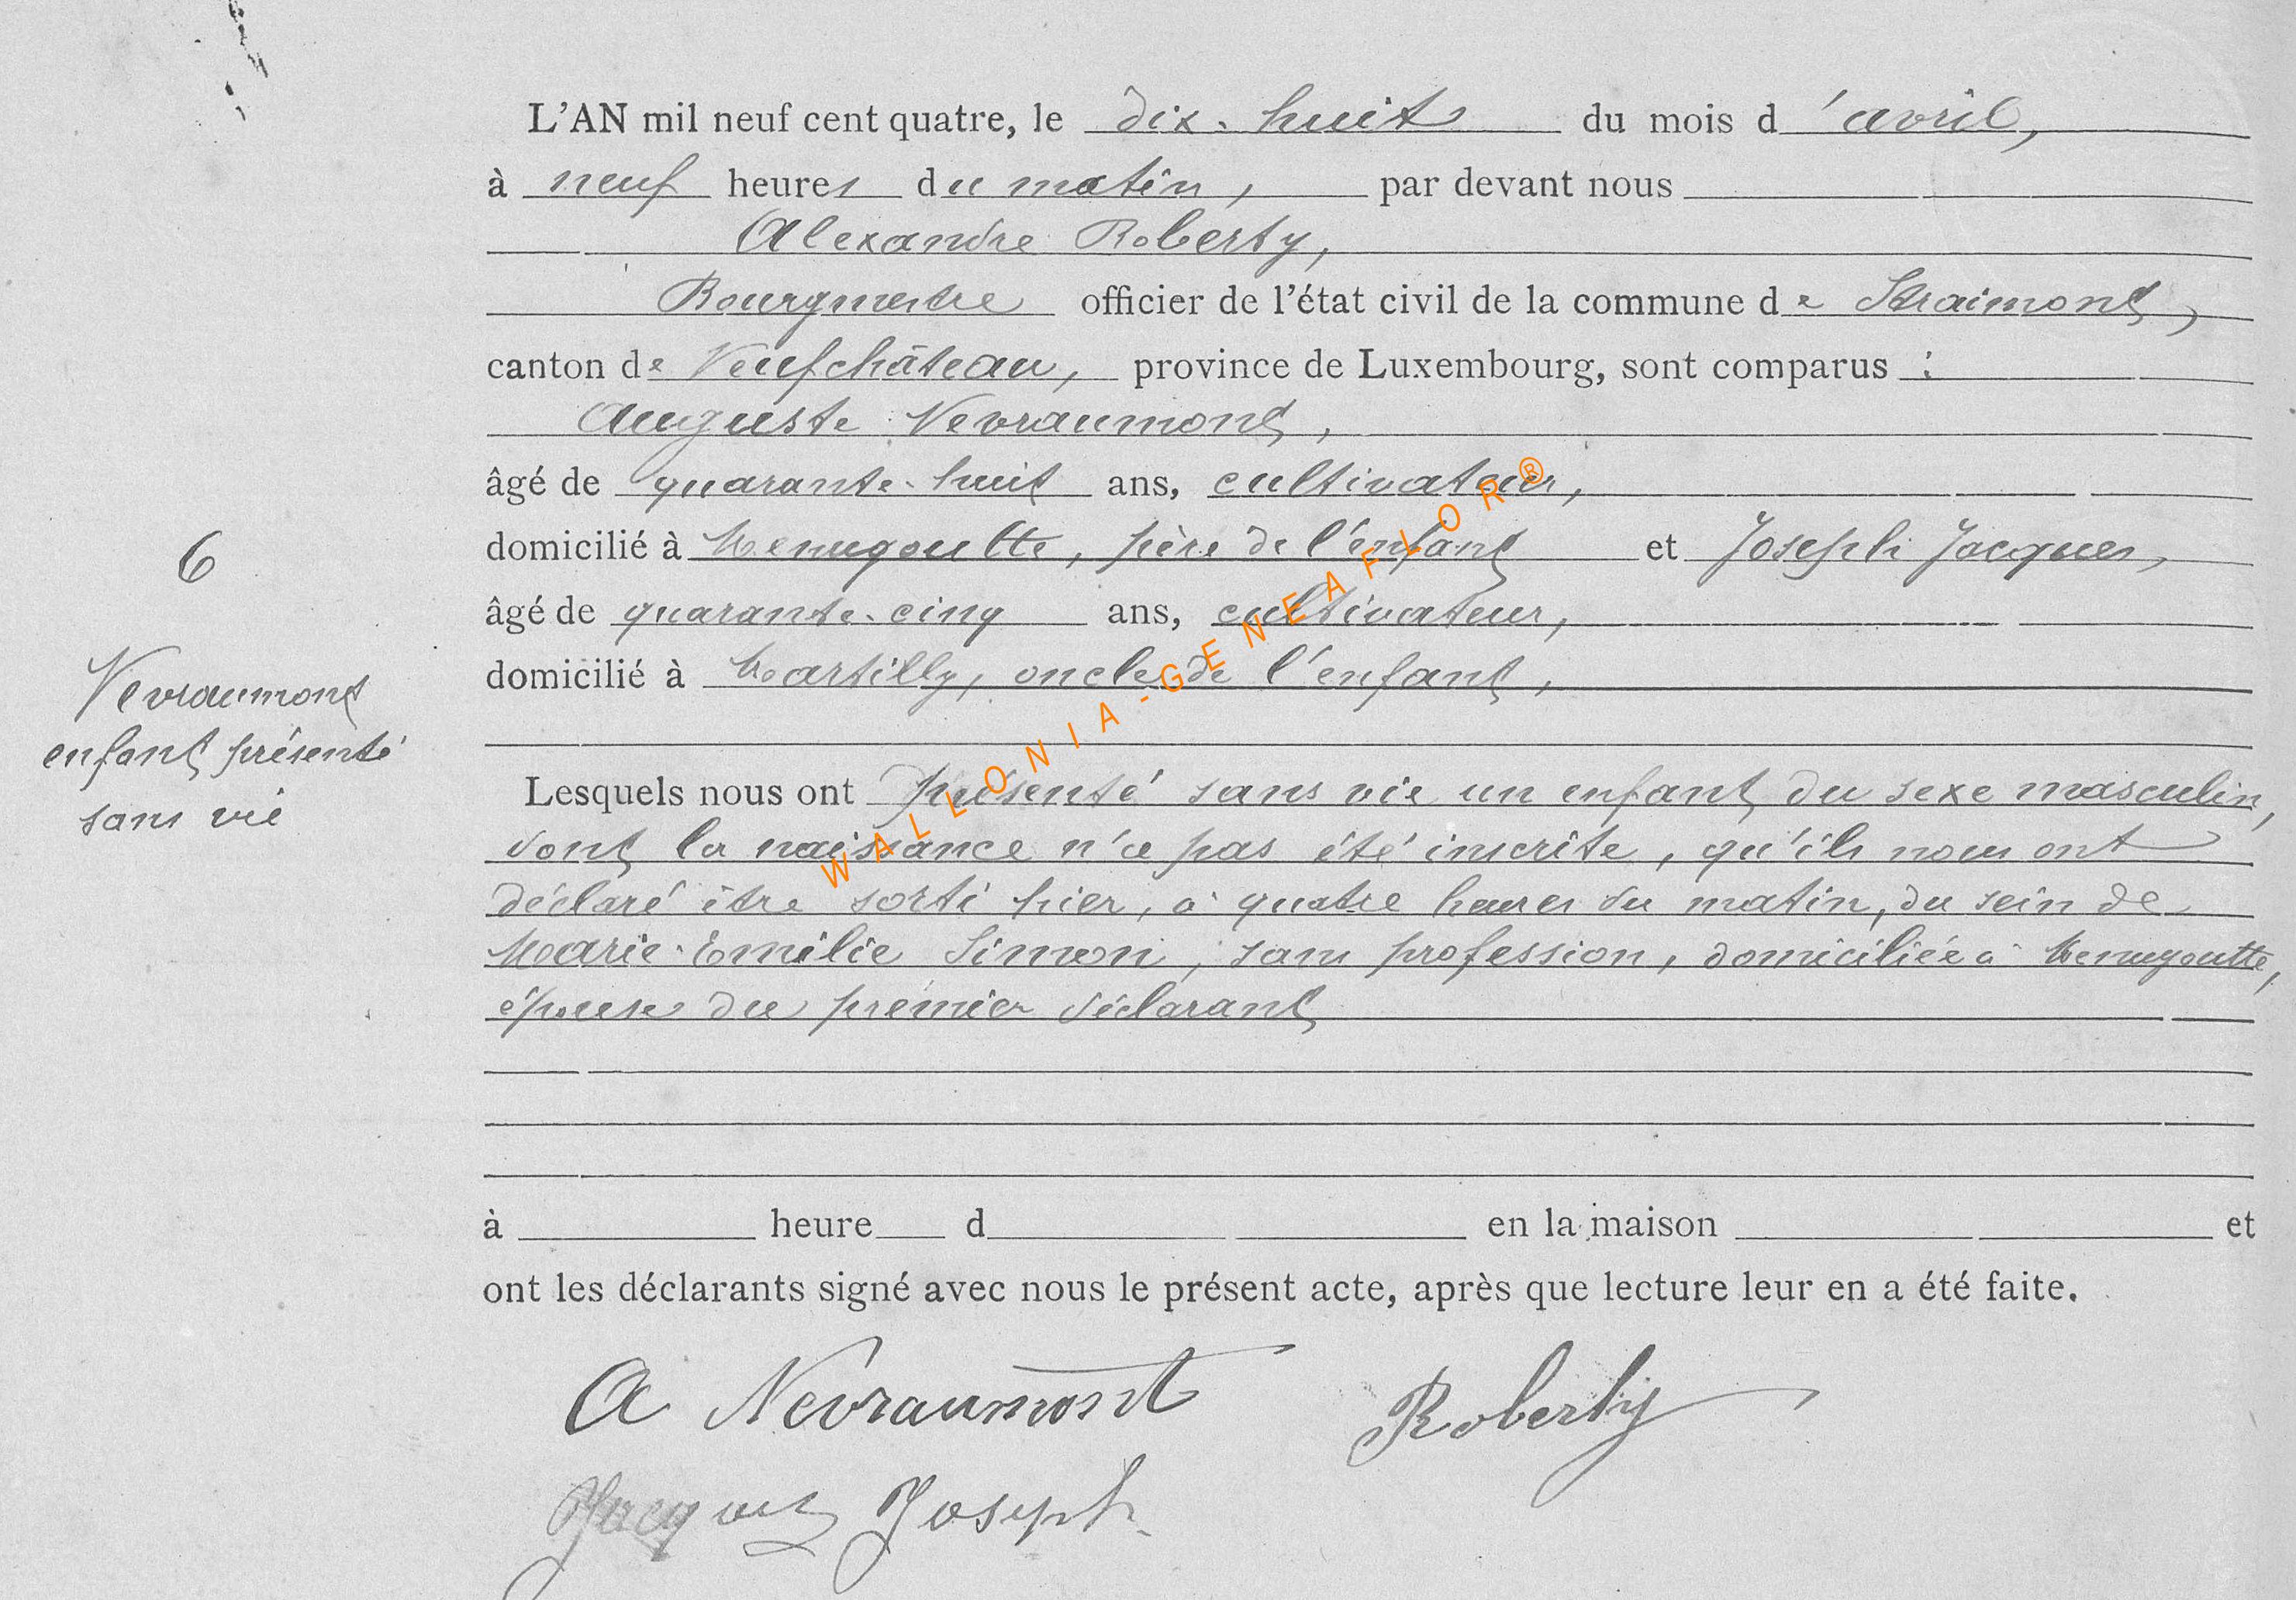 L'AN mil neuf cent quatre, le dix-huit du mois d'avril,
à neuf heures du matin, par devant nous
Alexandre Roberty,
Bourgmestre officier de l'état civil de la commune de Straimont,
canton de Neufchâteau, province de Luxembourg, sont comparus :
Auguste Nevraumont,
âgé de quarante-huit ans, cultivateur,
domicilié à Menugoutte, père de l'enfant et Joseph Jacques,
âgé de quarante-cinq ans, cultivateur,
domicilié à Martilly, oncle de l'enfant,
6
Nevraumont
enfant présenté
sans vie
Lesquels nous ont présenté sans vie un enfant du sexe masculin,
dont la naissance n'a pas été inscrite, qu'ils nous ont
déclaré être sorti hier, à quatre heures du matin, du sein de
Marie-Emilie Simon, sans profession, domiciliée à Menugoutte,
épouse du premier déclarant
à heure d en la maison et
ont les déclarants signé avec nous le présent acte, après que lecture leur en a été faite.
A Nevraumont Roberty
Jacques Joseph
WALLONIA-GENEAFLOR®